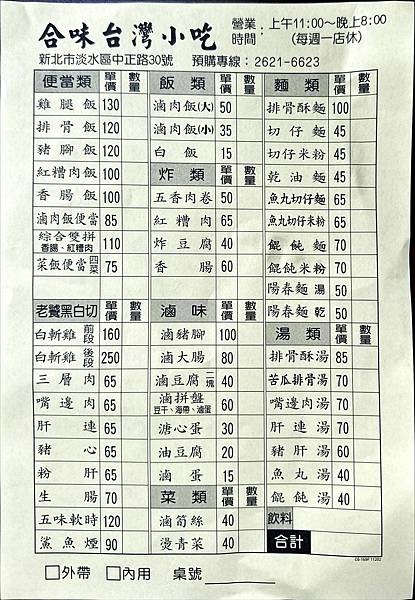 合味台灣小吃
營業時間： 上午11:00～晚上8:00
(每週一店休)
新北市淡水區中正路30號 預購專線：2621-6623
便當類 單價 數量
雞腿飯 130
排骨飯 120
豬腳飯 120
紅糟肉飯 100
香腸飯 100
滷肉飯便當 85
綜合雙拼 香腸、紅糟肉 110
菜飯便當 四菜 75
飯類 單價 數量
滷肉飯(大) 50
滷肉飯(小) 35
白飯 15
炸類 單價 數量
五香肉卷 50
紅糟肉 65
炸豆腐 40
香腸 60
麵類 單價 數量
排骨酥麵 100
切仔麵 45
切仔米粉 45
乾油麵 45
魚丸切仔麵 65
魚丸切仔米粉 65
餛飩麵 70
餛飩米粉 70
陽春麵 湯 50
陽春麵 乾 50
老饕黑白切 單價 數量
白斬雞 前段 160
白斬雞 後段 250
三層肉 65
嘴邊肉 65
肝連 65
豬心 65
粉肝 65
生腸 70
五味軟時 120
鯊魚煙 90
滷味 單價 數量
滷豬腳 100
滷大腸 80
滷豆腐 二塊 40
滷拼盤 豆干、海帶、滷蛋 60
溏心蛋 30
油豆腐 20
滷蛋 15
菜類 單價 數量
滷筍絲 40
燙青菜 40
湯類 單價 數量
排骨酥湯 85
苦瓜排骨湯 70
嘴邊肉湯 70
肝連湯 70
豬肝湯 60
魚丸湯 40
餛飩湯 40
飲料
合計
□外帶 □內用 桌號